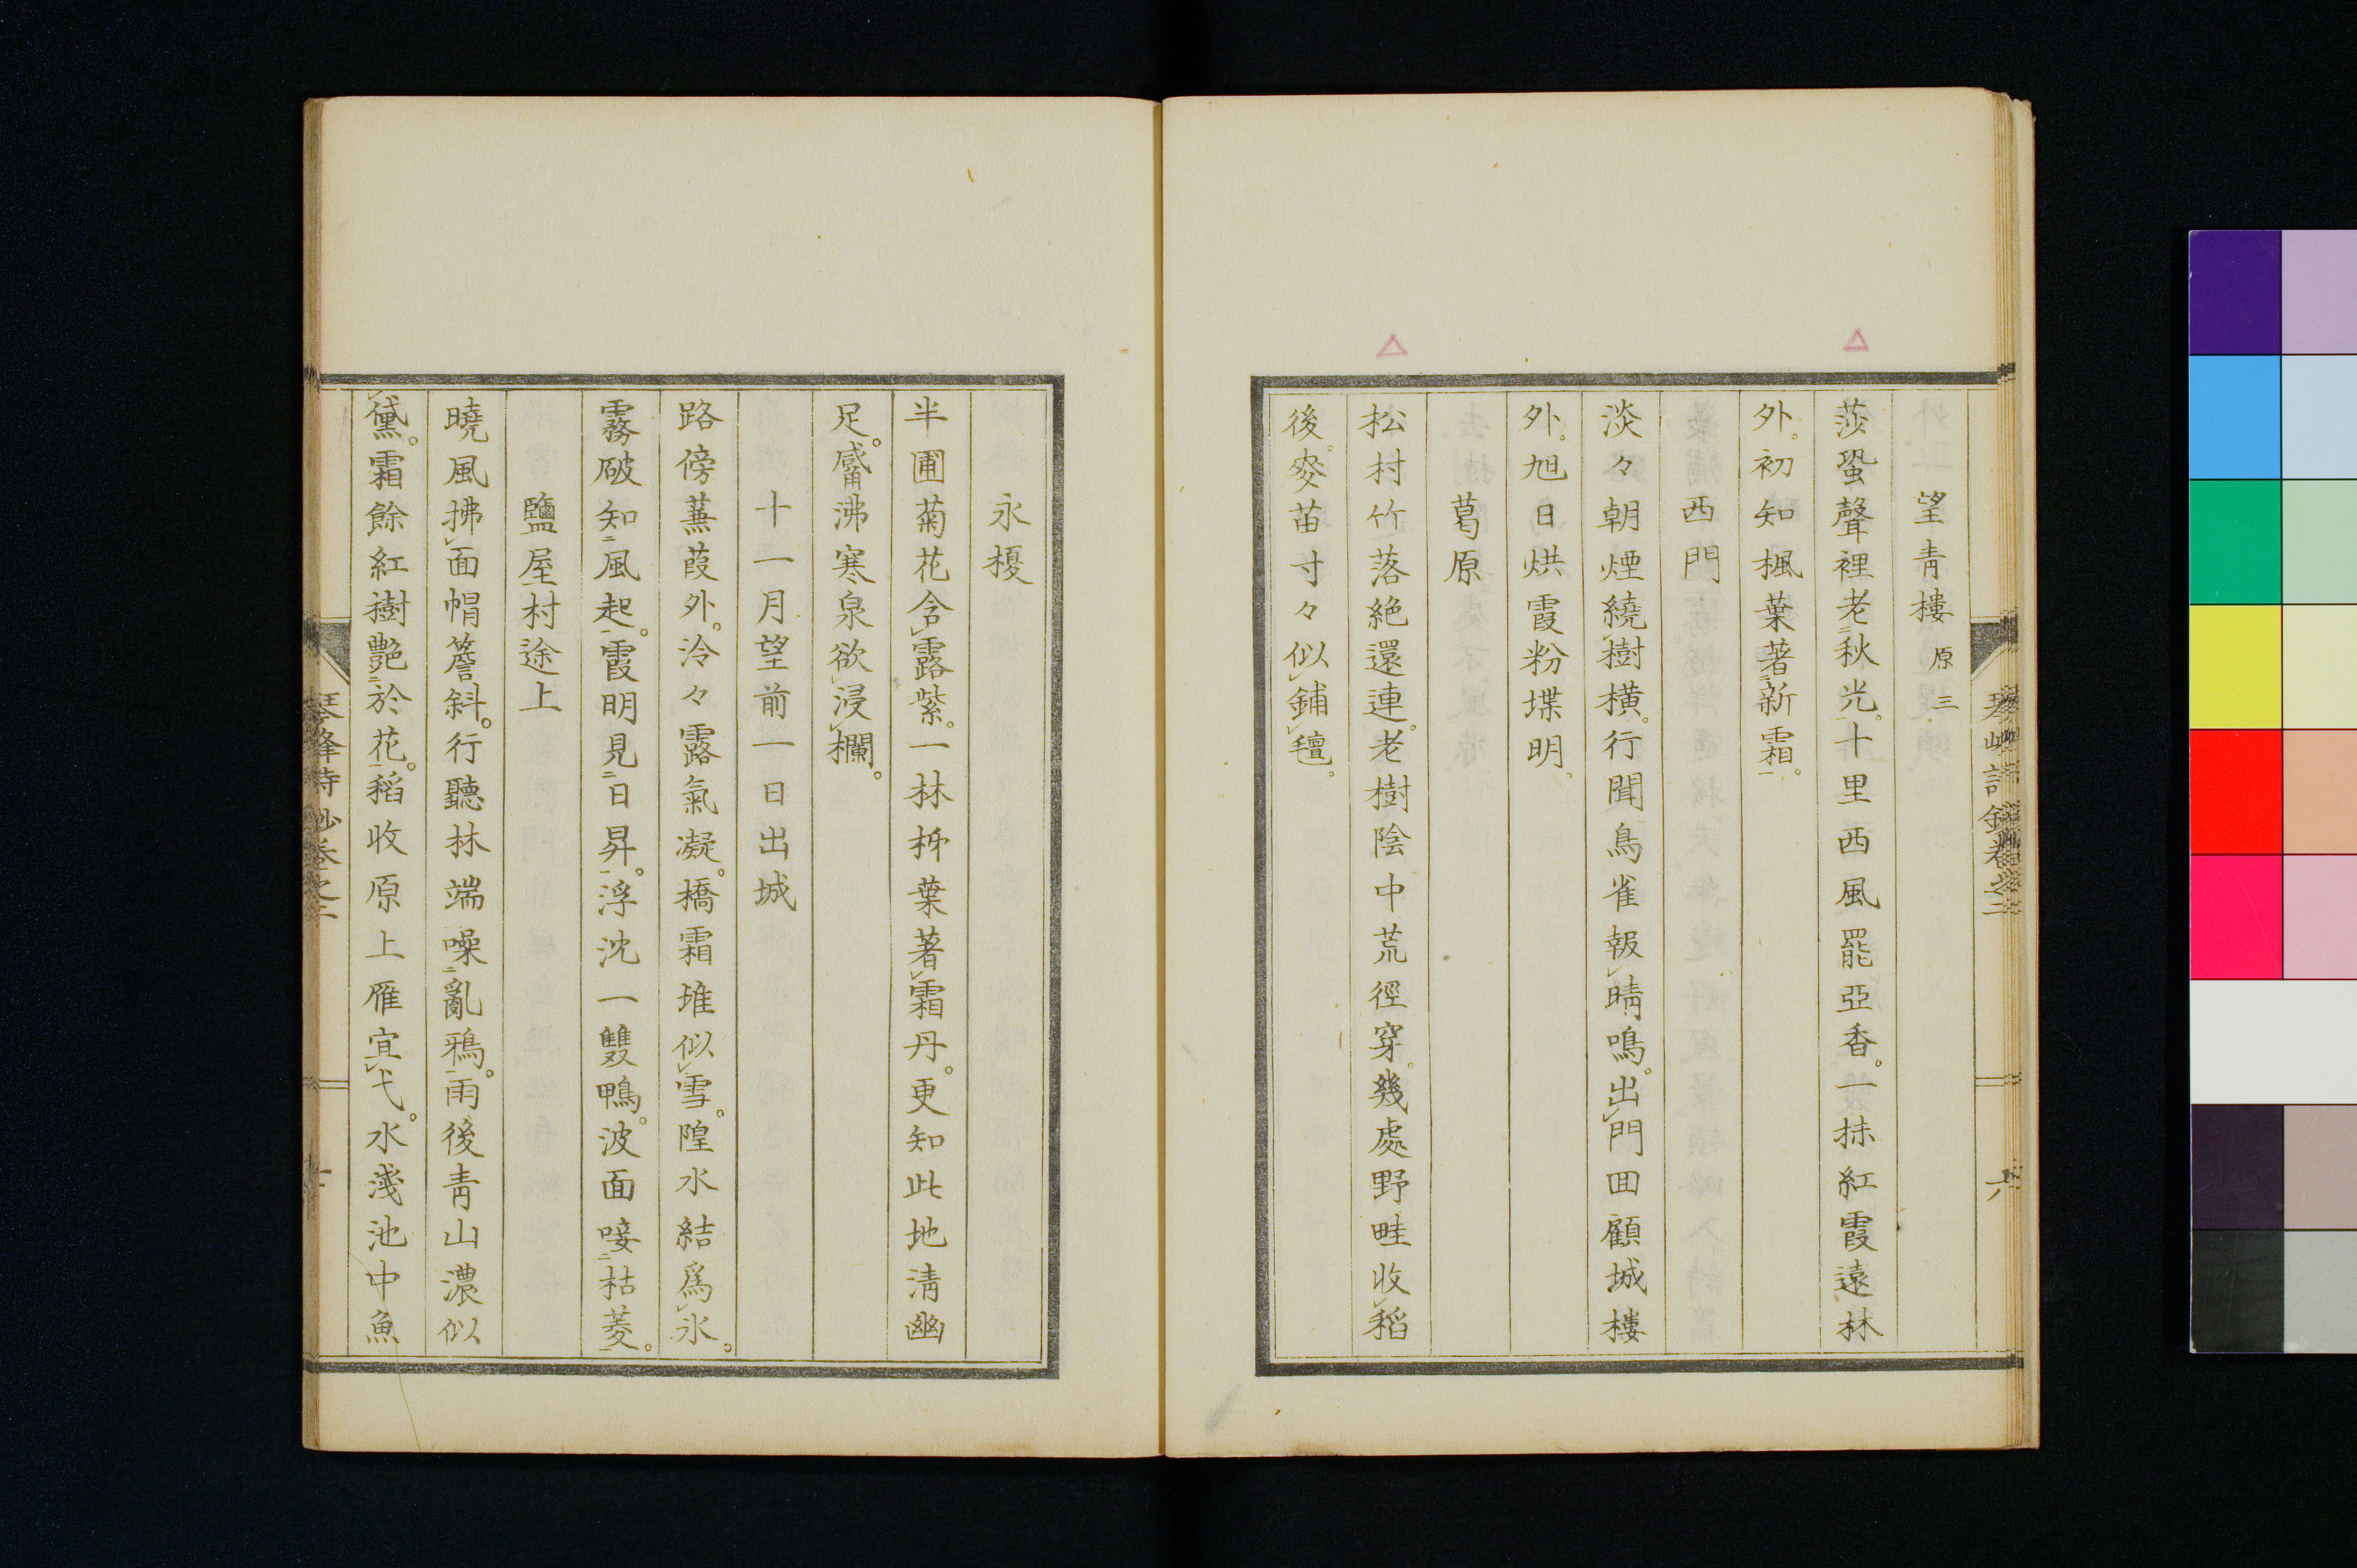 望青樓原三
莎蛩聲裡老秋光。十里西風罷亞香。一抹紅霞遠林
外。初知楓葉著新霜。
西門
淡々朝煙繞樹橫。行聞鳥雀報晴鳴。出門回顧城樓
外。旭日烘霞粉堞明。
葛原
松村竹落絶還連。老樹陰中荒徑穿。幾處野畦收稻
後。麥苗寸々似鋪氊。
永榎
半圃菊花含露紫。一林柹葉著霜丹。更知此地淸幽
足。觱沸寒泉欲浸欄。
十一月望前一日出城
路傍蒹葭外。泠々露氣凝。橋霜堆似雪。隍水結爲氷。
霧破知風起。霞明見日昇。浮沈一雙鴨。波面唼枯菱。
鹽屋村途上
曉風拂面帽簷斜。行聽林端噪亂鴉。雨後靑山濃似
黛。霜餘紅樹艷於花。稻收原上雁宜弋。水淺池中魚